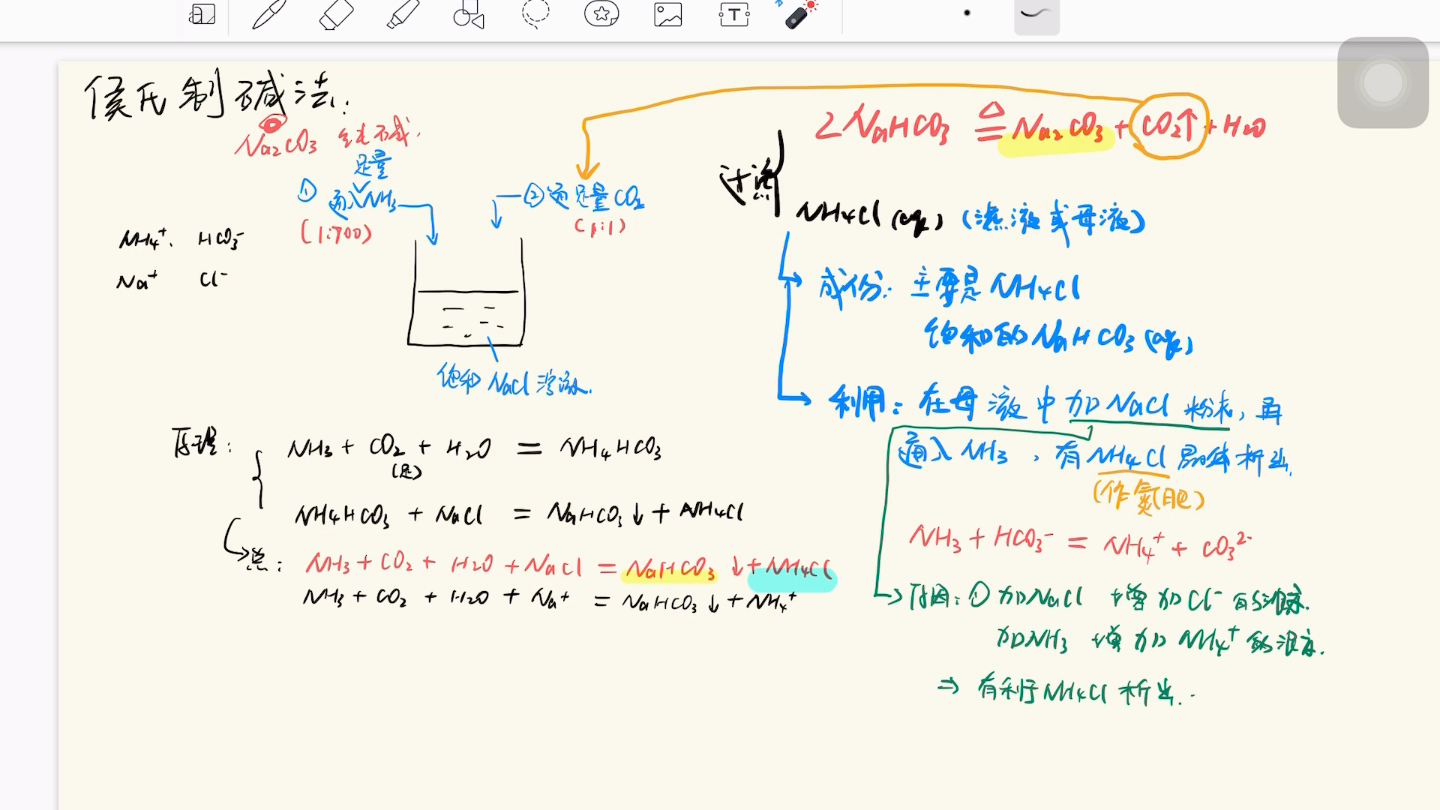 侯氏制碱法:
Na₂CO₃
足量
① 通入NH₃
(1:700)
②通足量CO₂
(1:1)
NH₄⁺. HCO₃⁻
Na⁺ Cl⁻
饱和 NaCl 溶液.
原理:
NH₃ + CO₂ + H₂O = NH₄HCO₃
(足)
NH₄HCO₃ + NaCl = NaHCO₃↓ + NH₄Cl
总: NH₃ + CO₂ + H₂O + NaCl = NaHCO₃↓ + NH₄Cl
NH₃ + CO₂ + H₂O + Na⁺ = NaHCO₃↓ + NH₄⁺
2NaHCO₃ ≜ Na₂CO₃ + CO₂↑ + H₂O
过滤
NH₄Cl (aq) (滤液或母液)
成份: 主要是NH₄Cl
饱和的NaHCO₃(aq)
利用: 在母液中加NaCl 粉末, 再
通入NH₃, 有NH₄Cl 晶体析出.
(作氮肥)
NH₃ + HCO₃⁻ = NH₄⁺ + CO₃²⁻
原因: ① 加NaCl 增加Cl⁻的浓度.
加NH₃ 增加NH₄⁺的浓度.
⇒ 有利于NH₄Cl 析出.